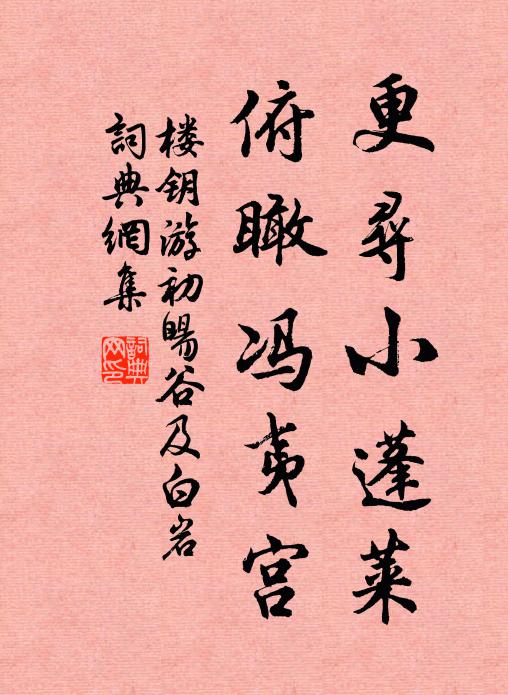 更尋小蓬莱
俯瞰冯夷宫
楼钥游初暘谷及白岩
詞典網集
詞典网印